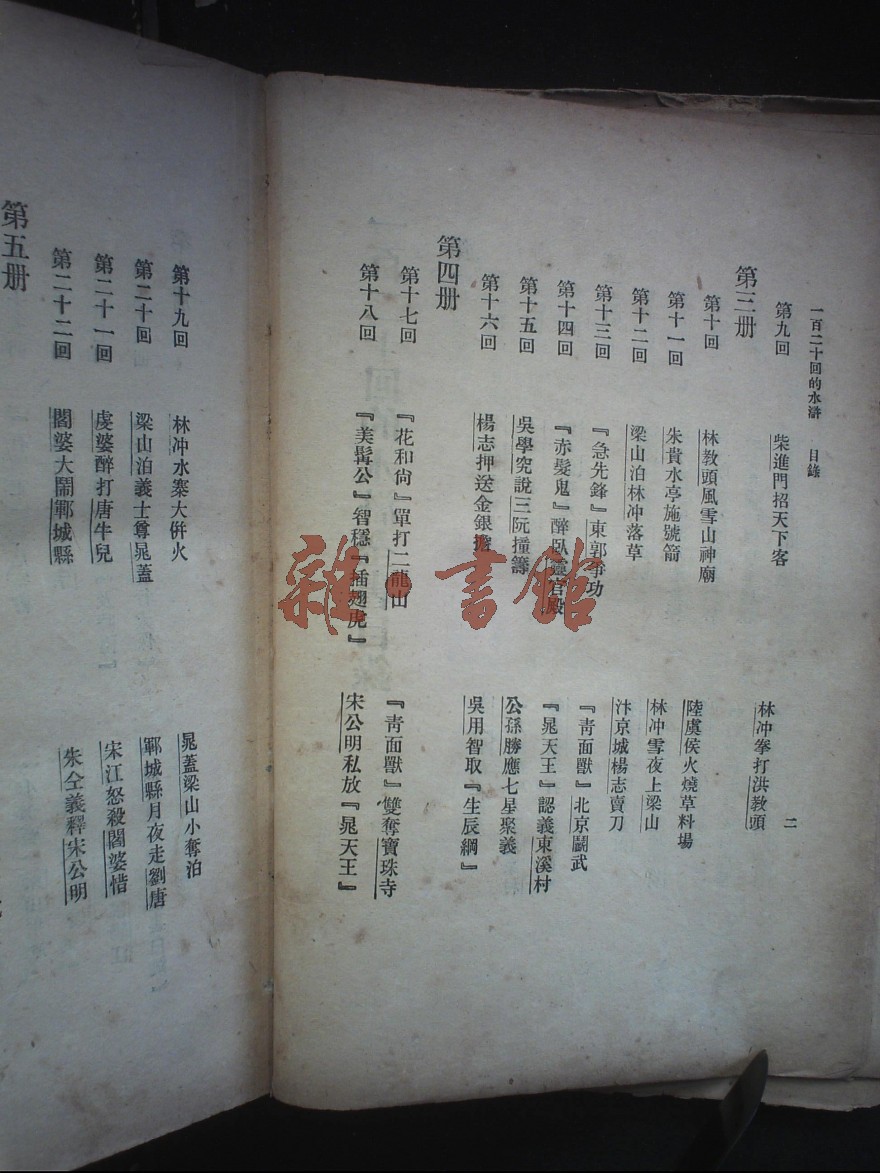 一百二十回的水滸 目錄 二
第九回 柴進門招天下客 林冲拳打洪教頭
第三册
第十回 林教頭風雪山神廟 陸虞侯火燒草料場
第十一回 朱貴水亭施號箭 林冲雪夜上梁山
第十二回 梁山泊林冲落草 汴京城楊志賣刀
第十三回 『急先鋒』東郭爭功 『青面獸』北京鬭武
第十四回 『赤髮鬼』醉臥靈官殿 『晁天王』認義東溪村
第十五回 吳學究說三阮撞籌 公孫勝應七星聚義
第十六回 楊志押送金銀擔 吳用智取『生辰綱』
第四册
第十七回 『花和尙』單打二龍山 『靑面獸』雙奪寶珠寺
第十八回 『美髯公』智穩『插翅虎』 宋公明私放『晁天王』
第十九回 林冲水寨大倂火 晁蓋梁山小奪泊
第二十回 梁山泊義士尊晁蓋 鄆城縣月夜走劉唐
第二十一回 虔婆醉打唐牛兒 宋江怒殺閻婆惜
第二十二回 閻婆大鬧鄆城縣 朱仝義釋宋公明
第五册
雜·書館